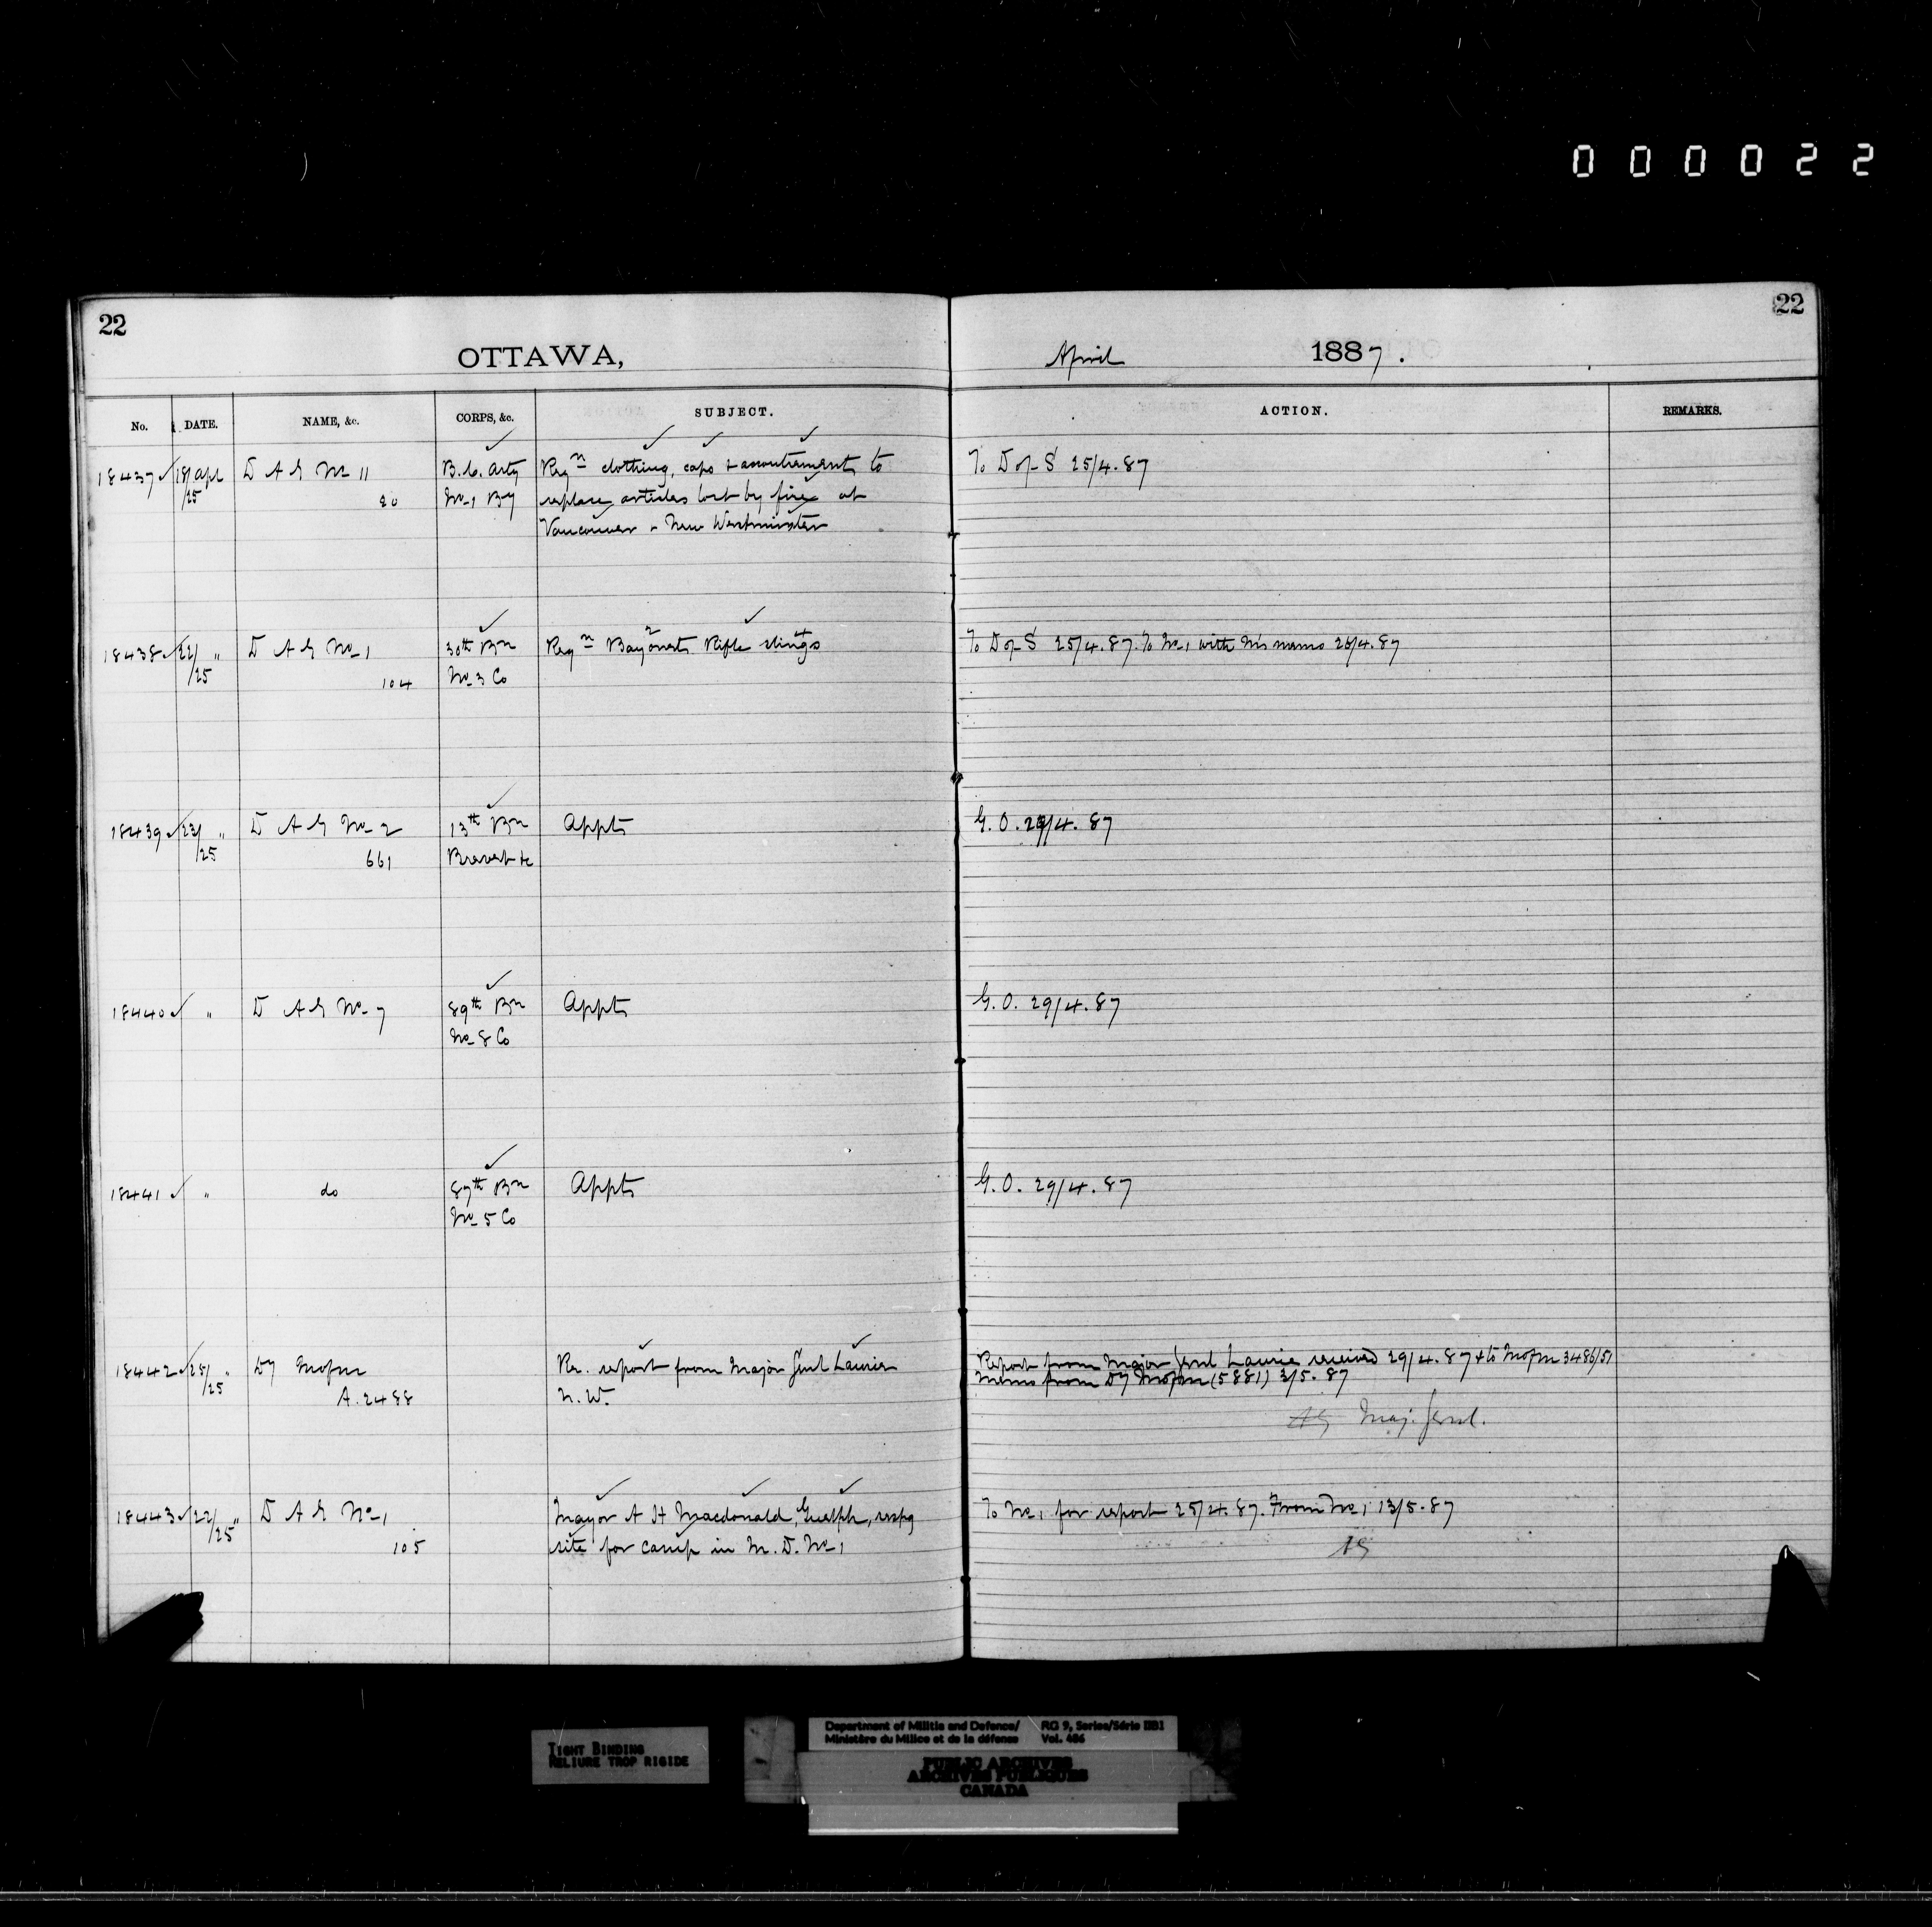 000022
22
22
OTTAWA,
April 1887.
No. DATE. NAME, &c. CORPS, &c. SUBJECT. ACTION. REMARKS.
18437 18/25 Apl D A G No 11 B.C. Arty Reqn clothing, caps & accoutrements to To D of S 25/4.87
20 No 1 By replace articles lost by fire at
Vancouver & New Westminster
18438 22/25 " D A G No 1 30th Bn Reqn Bayonets Rifle slings To D of S 25/4.87. To No 1 with his memo 26/4.87
104 No 3 Co
18439 23/25 " D A G No 2 13th Bn Appts G.O. 29/4.87
661 Brevet &c
18440 " D A G No 7 89th Bn Appts G.O. 29/4.87
No 8 Co
18441 " do 87th Bn Appts G.O. 29/4.87
No 5 Co
18442 25/25 " Dy Mofm Re. report from Major Genl Laurie Report from Major Genl Laurie received 29/4.87 & to Mofm 3486/51
A.2488 N.W. Memo from Dy Mofm (5881) 3/5.87
AG Maj. Genl.
18443 22/25 " D A G No 1 Mayor A H Macdonald, Guelph, respg To No 1 for report 25/4.87. From No 1 13/5.87
105 site for camp in M.D. No 1
AG
TIGHT BINDING
RELIURE TROP RIGIDE
Department of Militia and Defence/ RG 9, Series/Série IIB1
Ministère du Milice et de la défense Vol. 486
PUBLIC ARCHIVES
ARCHIVES PUBLIQUES
CANADA